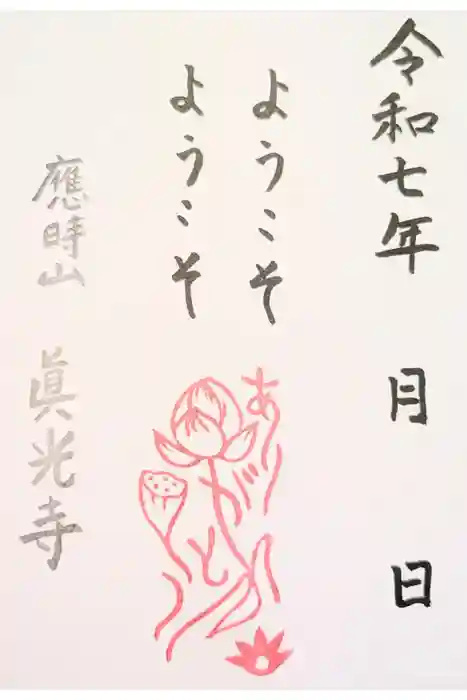 令和七年 月 日
ようこそ
ようこそ
ありがとう
應時山 眞光寺